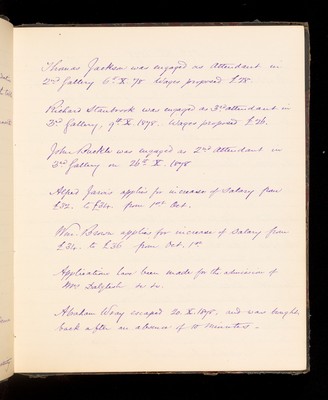 Thomas Jackson was engaged as Attendant in
2nd Gallery 6th X. 78 Wages proposed £28.
Richard Stanbrook was engaged as 3rd attendant in
3rd Gallery, 9th X 1878. Wages proposed £26.
John Ruckle was engaged as 2nd Attendant in
3rd Gallery on 26th X. 1878
Alfred Jarvis applies for increase of Salary from
£32. to £34. from 1st Oct.
Wm. Brown applies for increase of Salary from
£34. to £36 from Oct. 1st
Application have been made for the admission of
Mrs Dalglish
Abraham Wray escaped 20. X. 1878. and was brought
back after an absence of 10 minutes.